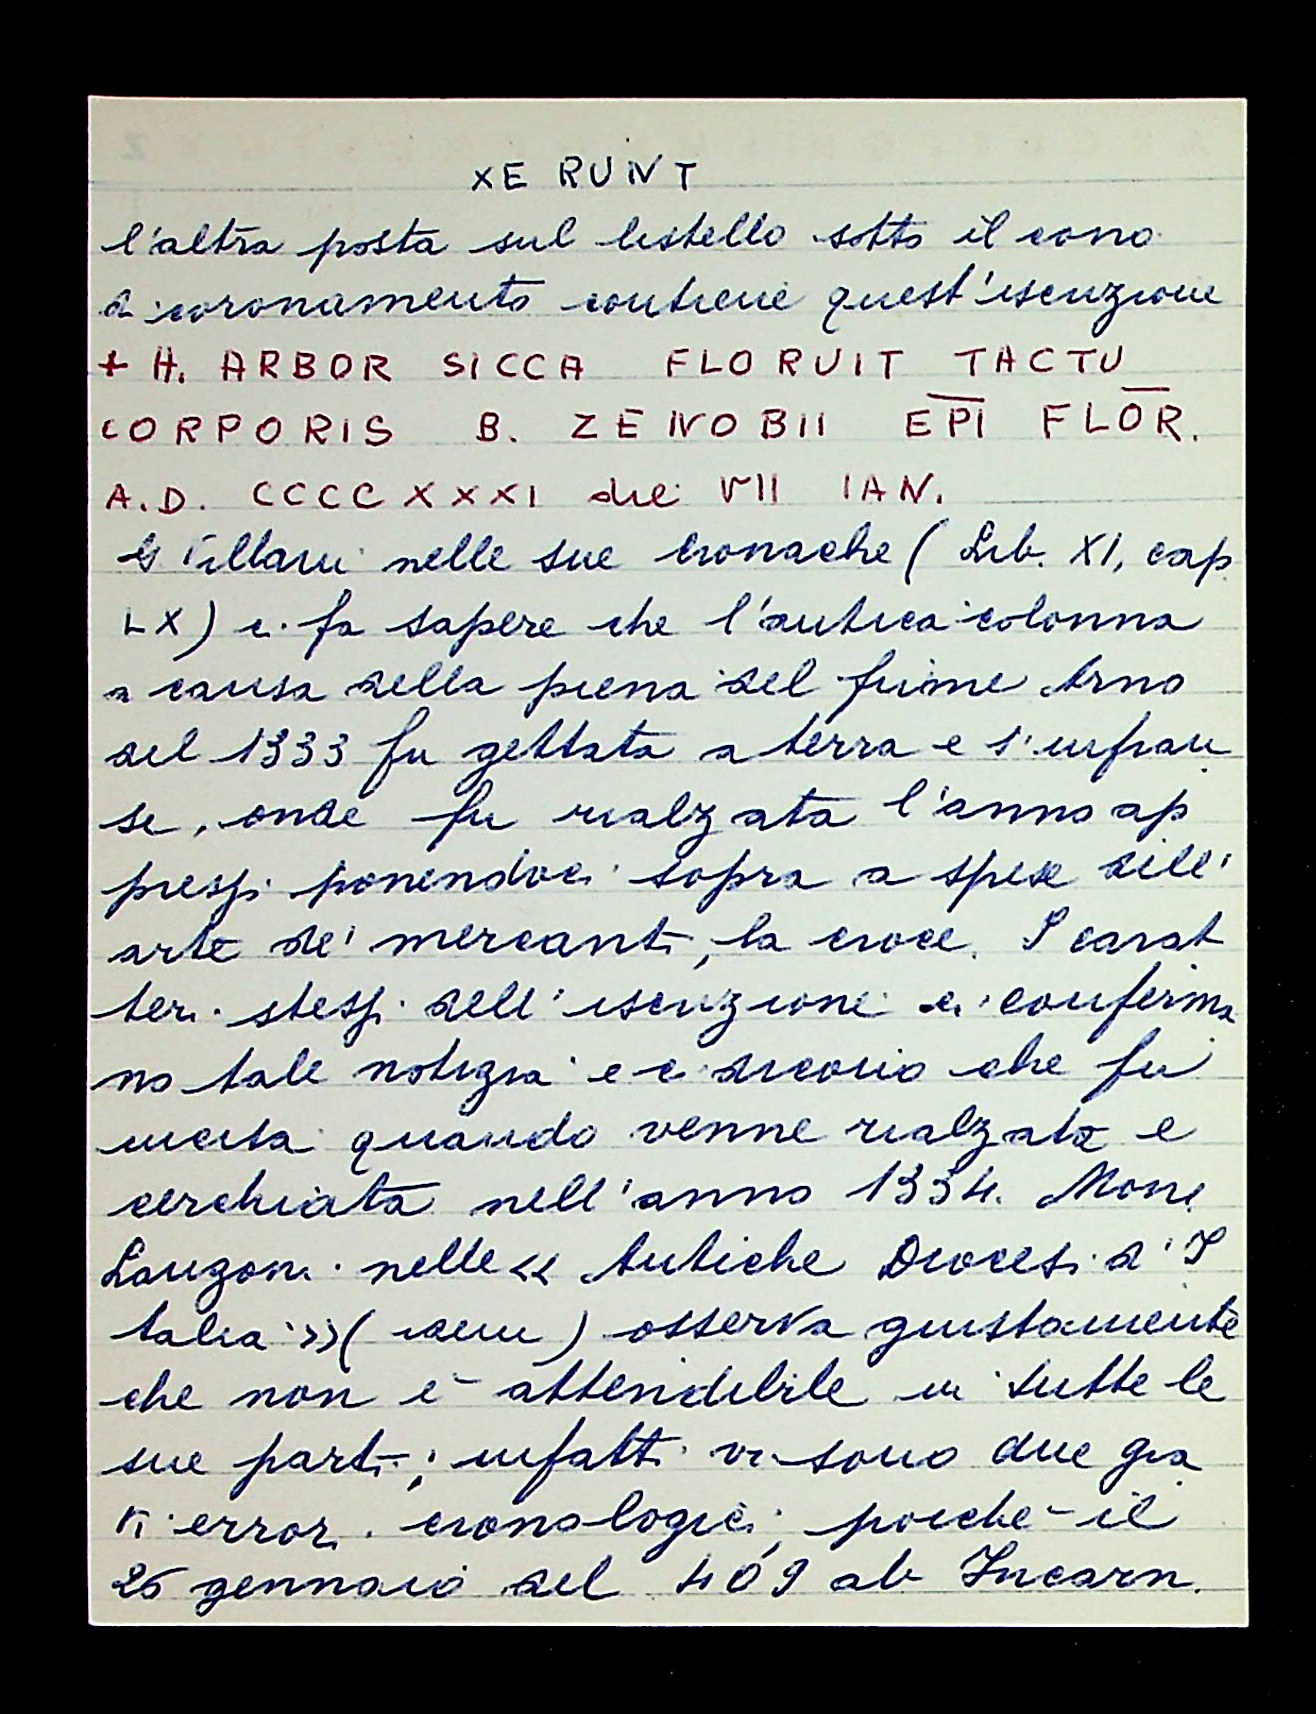 XE RUNT
l'altra posta sul listello sotto il cono
di coronamento contiene quest'iscrizione
+ H. ARBOR SICCA FLORUIT TACTU
CORPORIS B. ZENOBII EPI FLOR.
A.D. CCCCXXXI die VII IAN.
G Villani nelle sue cronache ( Lib. XI, cap
LX) ci fa sapere che l'antica colonna
a causa della piena del fiume Arno
del 1333 fu gettata a terra e s'infran
se, onde fu rialzata l'anno ap
presso ponendoci sopra a spese dell'
arte de' mercanti, la croce. I carat
teri stessi dell'iscrizione ci conferma
no tale notizia e ci dicono che fu
incisa quando venne rialzata e
cerchiata nell'anno 1334. Mons.
Lanzoni nelle « Antiche Diocesi d'I
talia »( idem ) osserva giustamente
che non è attendibile in tutte le
sue parti; infatti vi sono due gra
vi errori cronologici; poiché il
26 gennaio del 409 ab Incarn.